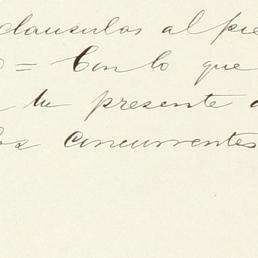 clausulas al pie
= Con lo que
la presente a
los concurrentes